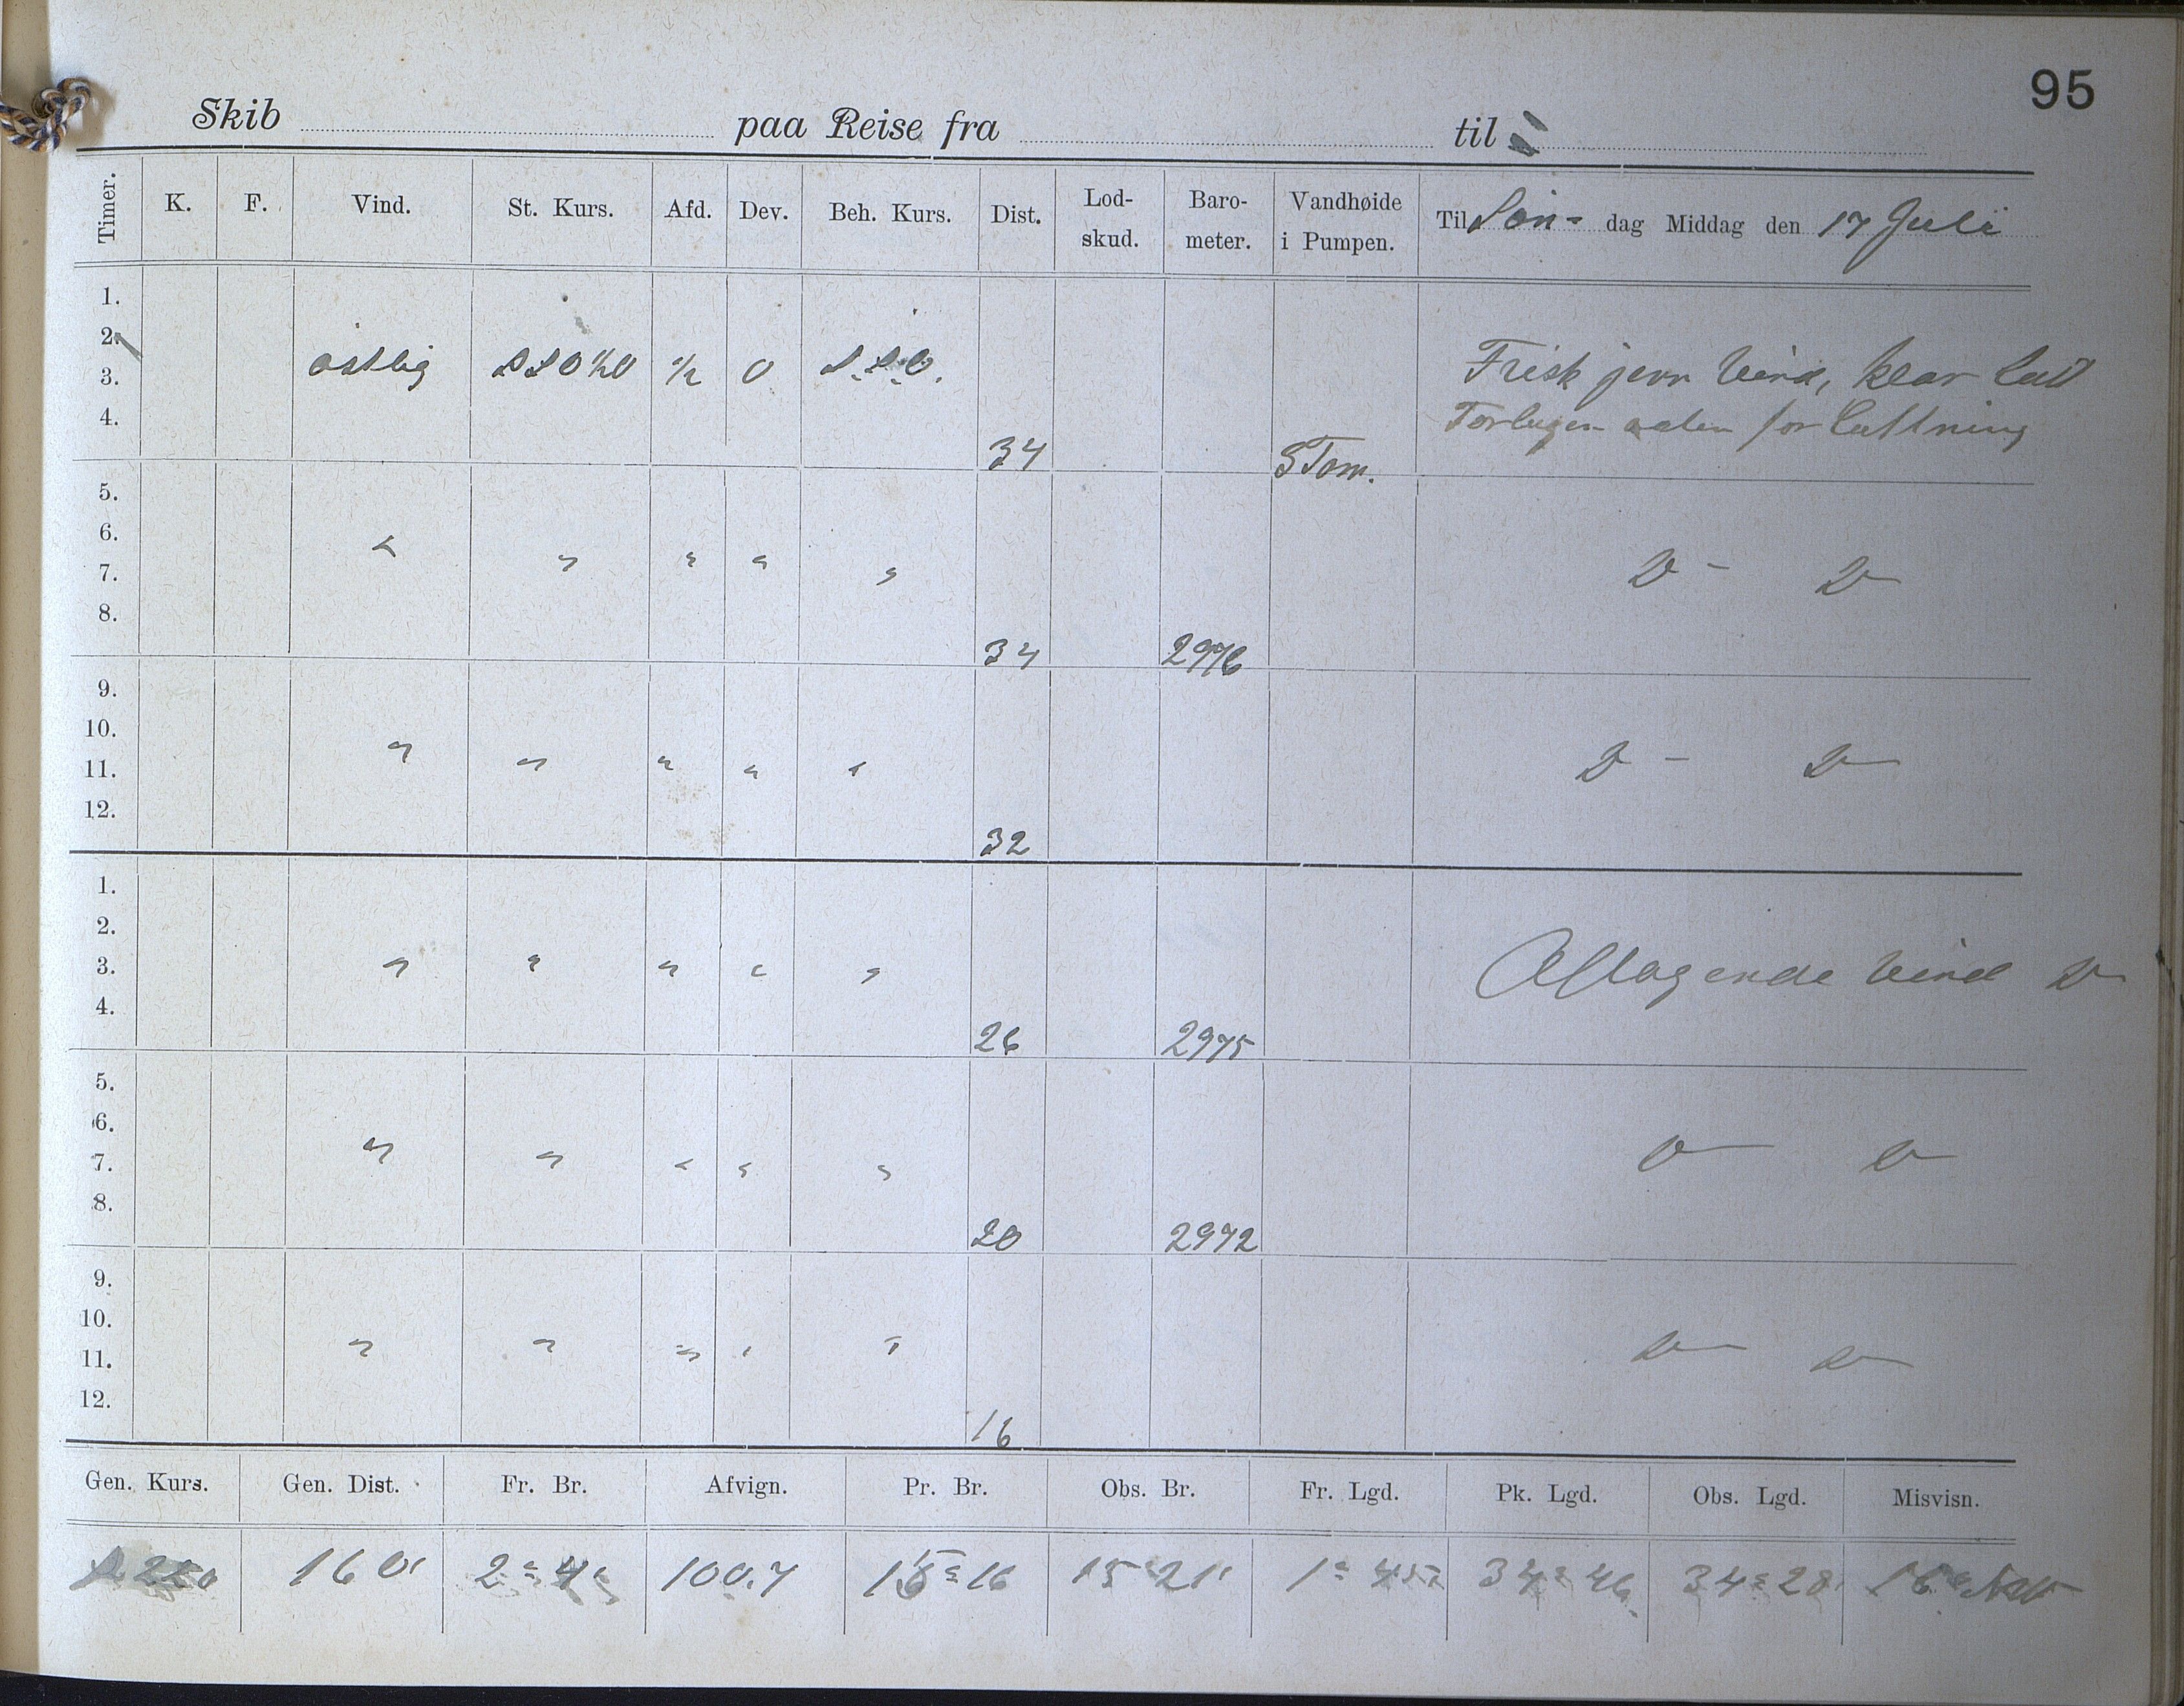 95
Skib paa Reise fra til
Timer. K. F. Vind. St. Kurs. Afd. Dev. Beh. Kurs. Dist. Lod-skud. Baro-meter. Vandhøide i Pumpen. Til Søn- dag Middag den 17 Juli
1.
2.
3. østlig SSO½O ½ 0 S.S.O. Frisk jevn Vind, klar Luft
4. 34 5 Tom. Forlugen aaben for Luftning
5.
6.
7. " " " " " Do - Do
8. 34 2976
9.
10.
11. " " " " " Do - Do
12. 32
1.
2.
3. " " " " " Aftagende Vind Do
4. 26 2975
5.
6.
7. " " " " " Do Do
8. 20 2972
9.
10.
11. " " " " " Do Do
12. 16
Gen. Kurs. Gen. Dist. Fr. Br. Afvign. Pr. Br. Obs. Br. Fr. Lgd. Pk. Lgd. Obs. Lgd. Misvisn.
160' 2° 4' 100.7 15° 16 15° 21' 1° 45 34° 46 34° 28' 16°